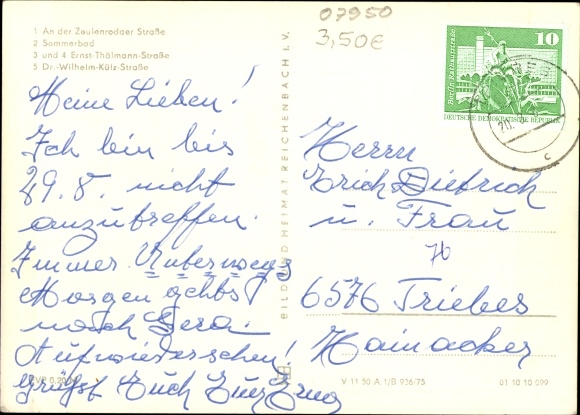 07950
3,50€
1 An der Zeulenrodaer Straße
2 Sommerbad
3 und 4 Ernst-Thälmann-Straße
5 Dr.-Wilhelm-Külz-Straße
Meine Lieben!
Ich bin bis
29.8. nicht
anzutreffen.
Immer Unterwegs
Morgen gehts
nach Gera.
Aufwiedersehen!
grüßst Euch Euer
BILD UND HEIMAT REICHENBACH I. V.
Berlin Rathausstraße
10
DEUTSCHE DEMOKRATISCHE REPUBLIK
20.
c
Herrn
Erich Dietrich
u. Frau
7b
6576 Triebes
Hainacker
EVP 0,20 M
V 11 50 A 1/B 936/75
01 10 10 099